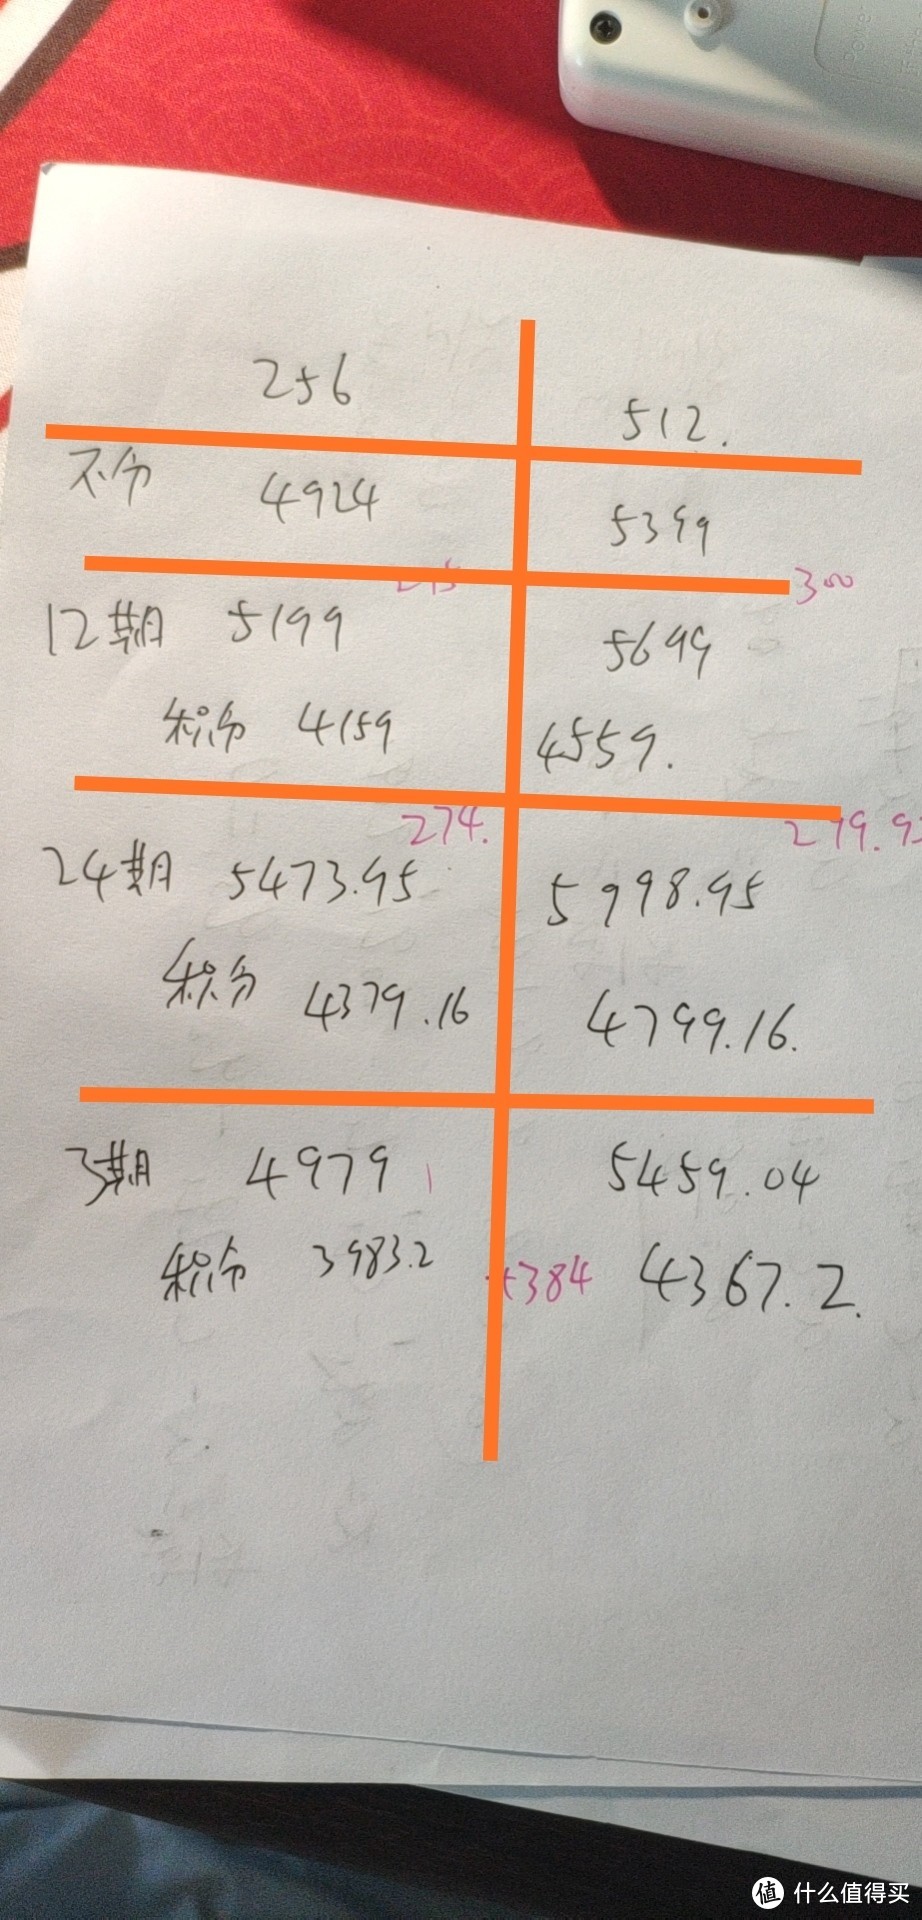 Power
256 512.
不分 4924 5399
300
12期 5199 5699
积分 4159 4559.
274. 299.95
24期 5473.95 5998.95
积分 4379.16 4799.16.
3期 4979 5459.04
积分 3983.2 +384 4367.2.
值 什么值得买